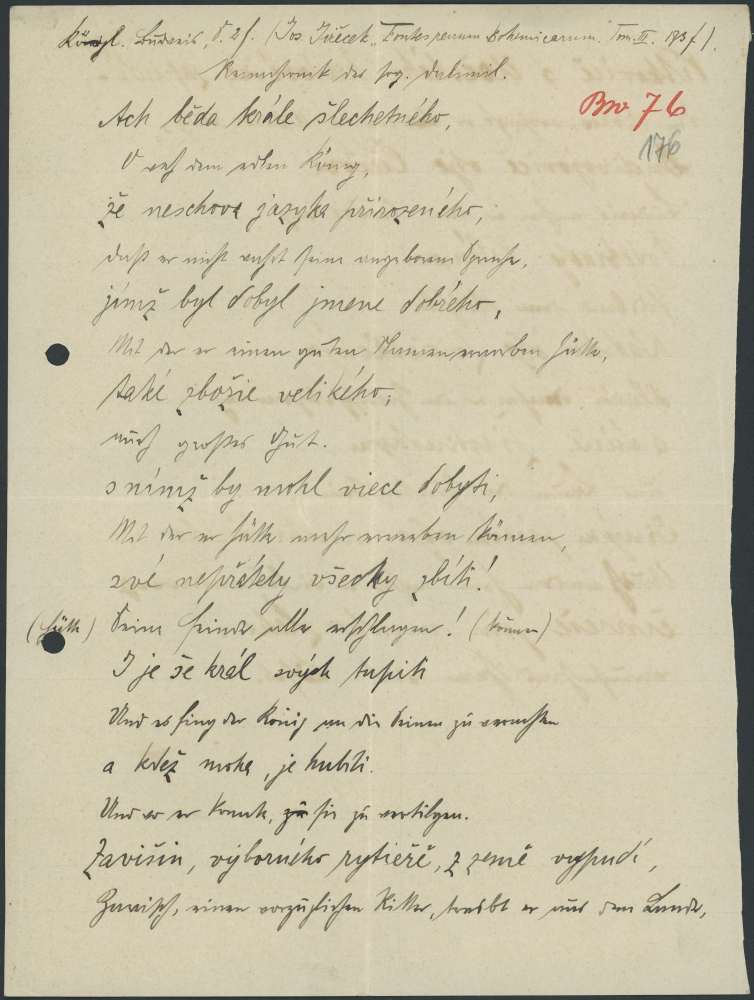 Königl. Budweis, S. 2 f. (Jos. Jireček „Fontes rerum Bohemicarum." Tom. III. 193 f).
Reimchronik des sog. Dalimil.
Bw 76
176
Ach běda krále šlechetného,
O weh dem edlen König,
že neschova jazyka přirozeného,
daß er nicht wahrt seine angeborene Sprache,
jímž byl dobyl jmene dobrého,
Mit der er einen guten Namen erworben hätte,
také zbožie velikého;
auch großes Gut.
s nímž by mohl viece dobyti,
Mit der er hätte mehr erwerben können,
své nepřátely všecky zbíti!
(hätte) Seine Feinde alle erschlagen! (können)
I je se král svých tupiti
Und es fing der König an die Seinen zu verachten
a kdež moha, je hubiti.
Und wo er konnte, zu sie zu vertilgen.
Zavišiu, výborného rytieřě, z země vypudí,
Zawisch, einen vorzüglichen Ritter, treibt er aus dem Lande,